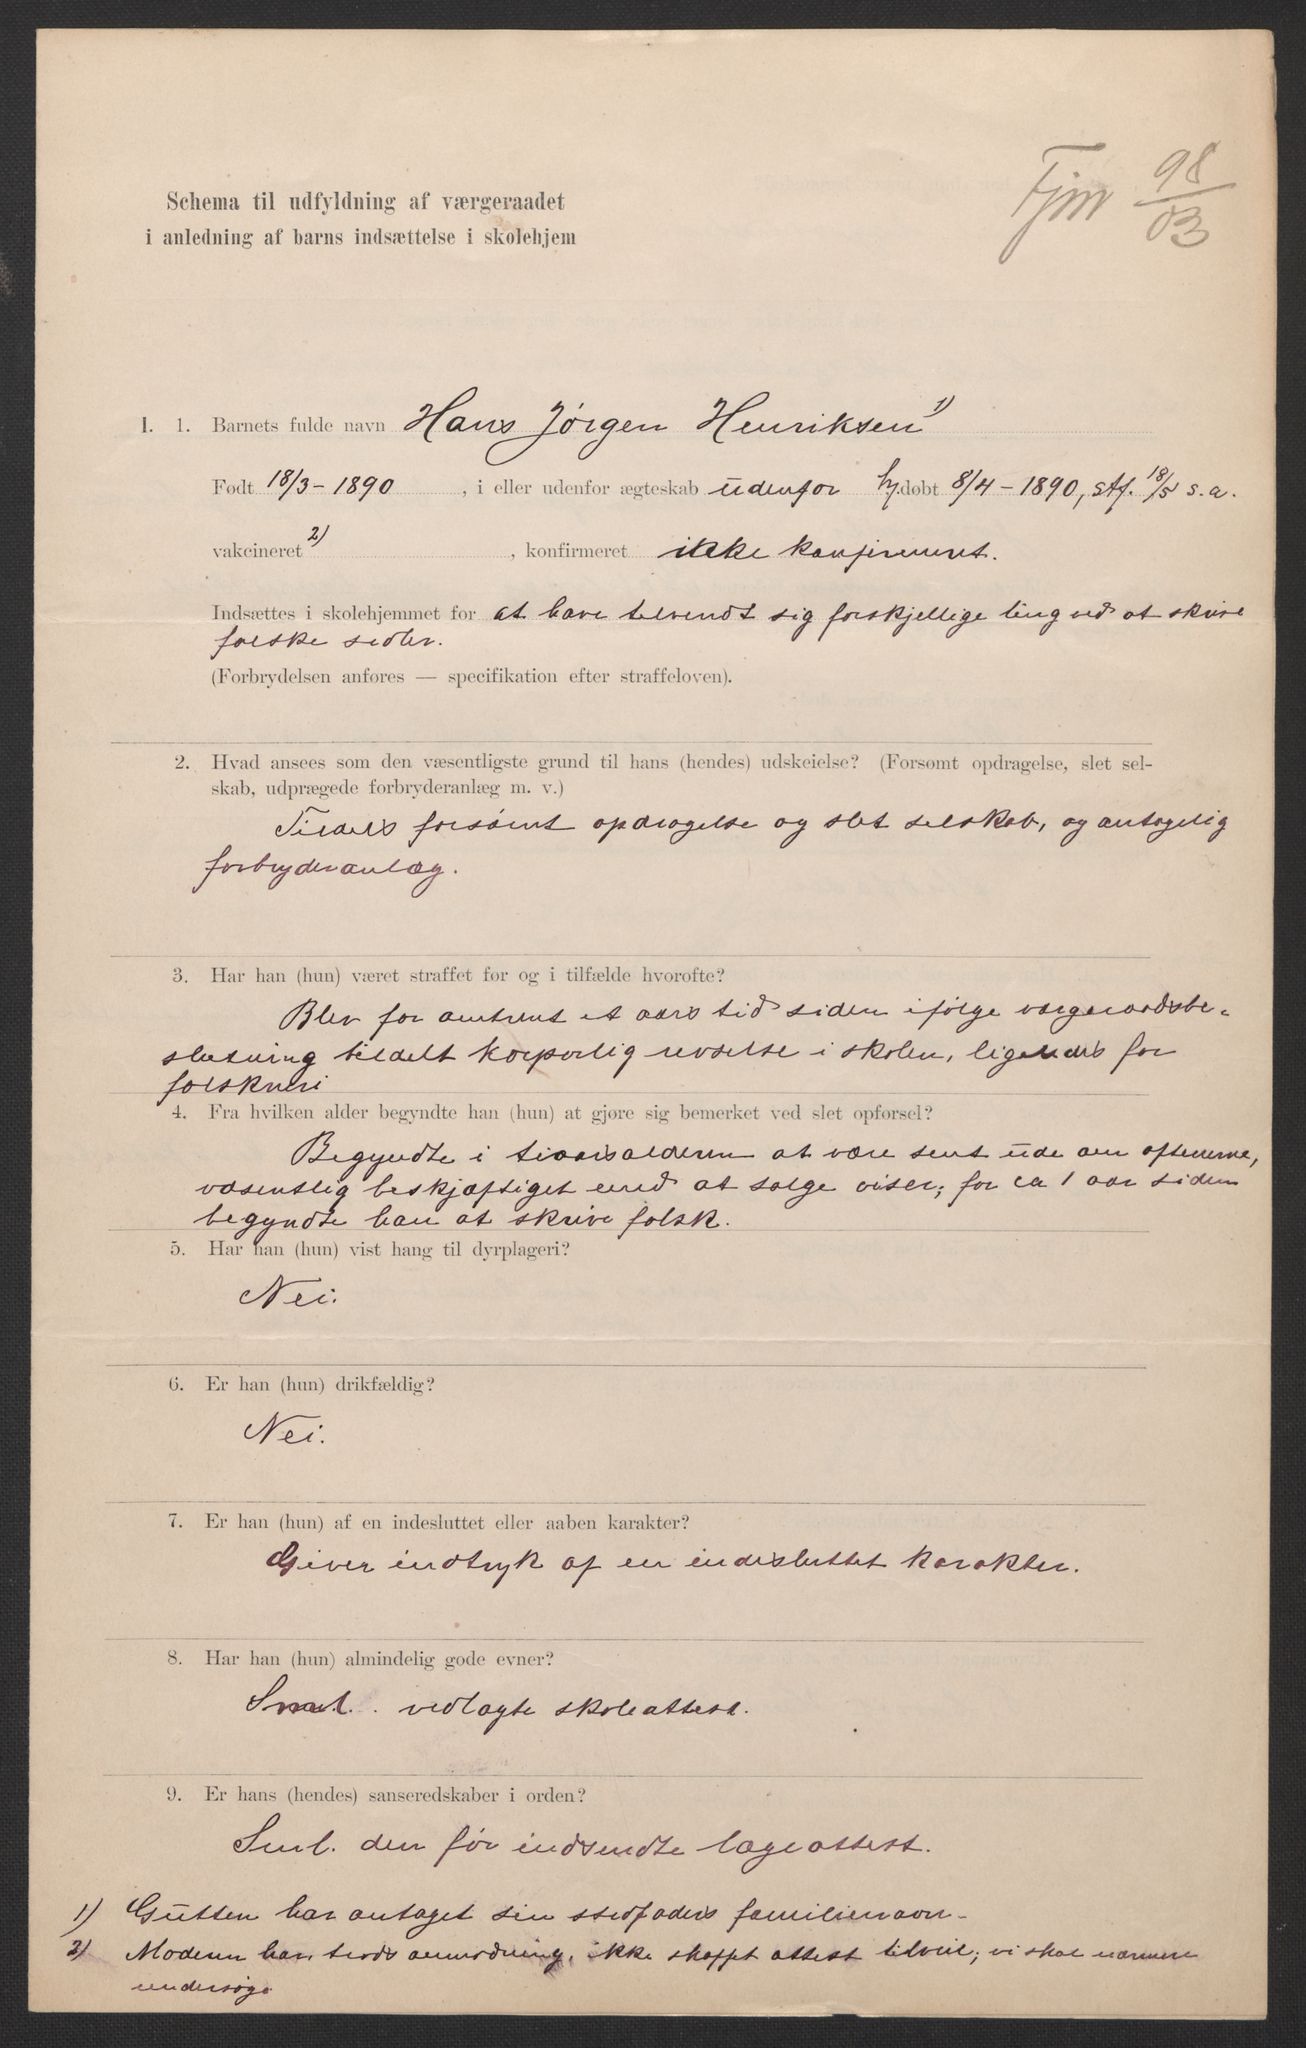 Fjm 98/03
Schema til udfyldning af værgeraadet
i anledning af barns indsættelse i skolehjem
I. 1. Barnets fulde navn Hans Jørgen Henriksen 1)
Født 18/3 - 1890, i eller udenfor ægteskab udenfor hj.døbt 8/4 - 1890, stf. 18/5 s.a.
vakcineret 2) , konfirmeret ikke konfirmeret.
Indsættes i skolehjemmet for at have tilvendt sig forskjellige ting ved at skrive
falske sedler.
(Forbrydelsen anføres — specifikation efter straffeloven).
2. Hvad ansees som den væsentligste grund til hans (hendes) udskeielse? (Forsømt opdragelse, slet sel-
skab, udprægede forbryderanlæg m. v.)
Tildels forsømt opdragelse og slet selskab, og antagelig
forbryderanlæg.
3. Har han (hun) været straffet før og i tilfælde hvorofte?
Blev for omtrent et aars tid siden ifølge værgeraadsbe-
slutning tildelt korporlig revselse i skolen, ligeledes for
falskneri
4. Fra hvilken alder begyndte han (hun) at gjøre sig bemerket ved slet opførsel?
Begyndte i tiaarsalderen at være sent ude om aftenerne,
væsentlig beskjæftiget med at sælge viser; for ca 1 aar siden
begyndte han at skrive falsk.
5. Har han (hun) vist hang til dyrplageri?
Nei.
6. Er han (hun) drikfældig?
Nei.
7. Er han (hun) af en indesluttet eller aaben karakter?
Giver indtryk af en indesluttet karakter.
8. Har han (hun) almindelig gode evner?
Sml. vedlagte skoleattest.
9. Er hans (hendes) sanseredskaber i orden?
Sml. den før indsendte lægeattest.
1) Gutten har antaget sin stedfaders familienavn.
2) Moderen har trods anmodning, ikke skaffet attest tilveie; vi skal nærmere
undersøge